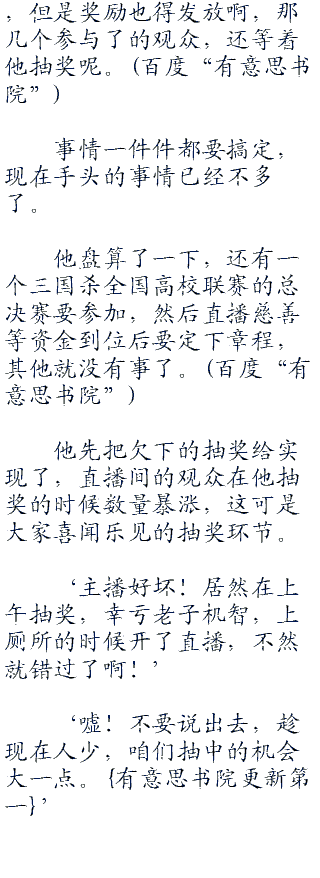 ，但是奖励也得发放啊，那
几个参与了的观众，还等着
他抽奖呢。(百度“有意思书
院”)
事情一件件都要搞定，
现在手头的事情已经不多
了。
他盘算了一下，还有一
个三国杀全国高校联赛的总
决赛要参加，然后直播慈善
等资金到位后要定下章程，
其他就没有事了。(百度“有
意思书院”)
他先把欠下的抽奖给实
现了，直播间的观众在他抽
奖的时候数量暴涨，这可是
大家喜闻乐见的抽奖环节。
‘主播好坏！居然在上
午抽奖，幸亏老子机智，上
厕所的时候开了直播，不然
就错过了啊！’
‘嘘！不要说出去，趁
现在人少，咱们抽中的机会
大一点。{有意思书院更新第
一}’